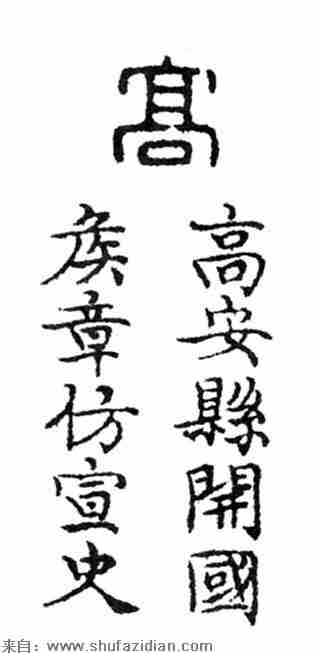 高
高安縣開國
侯章仿宣史
来自：www.shufazidian.com